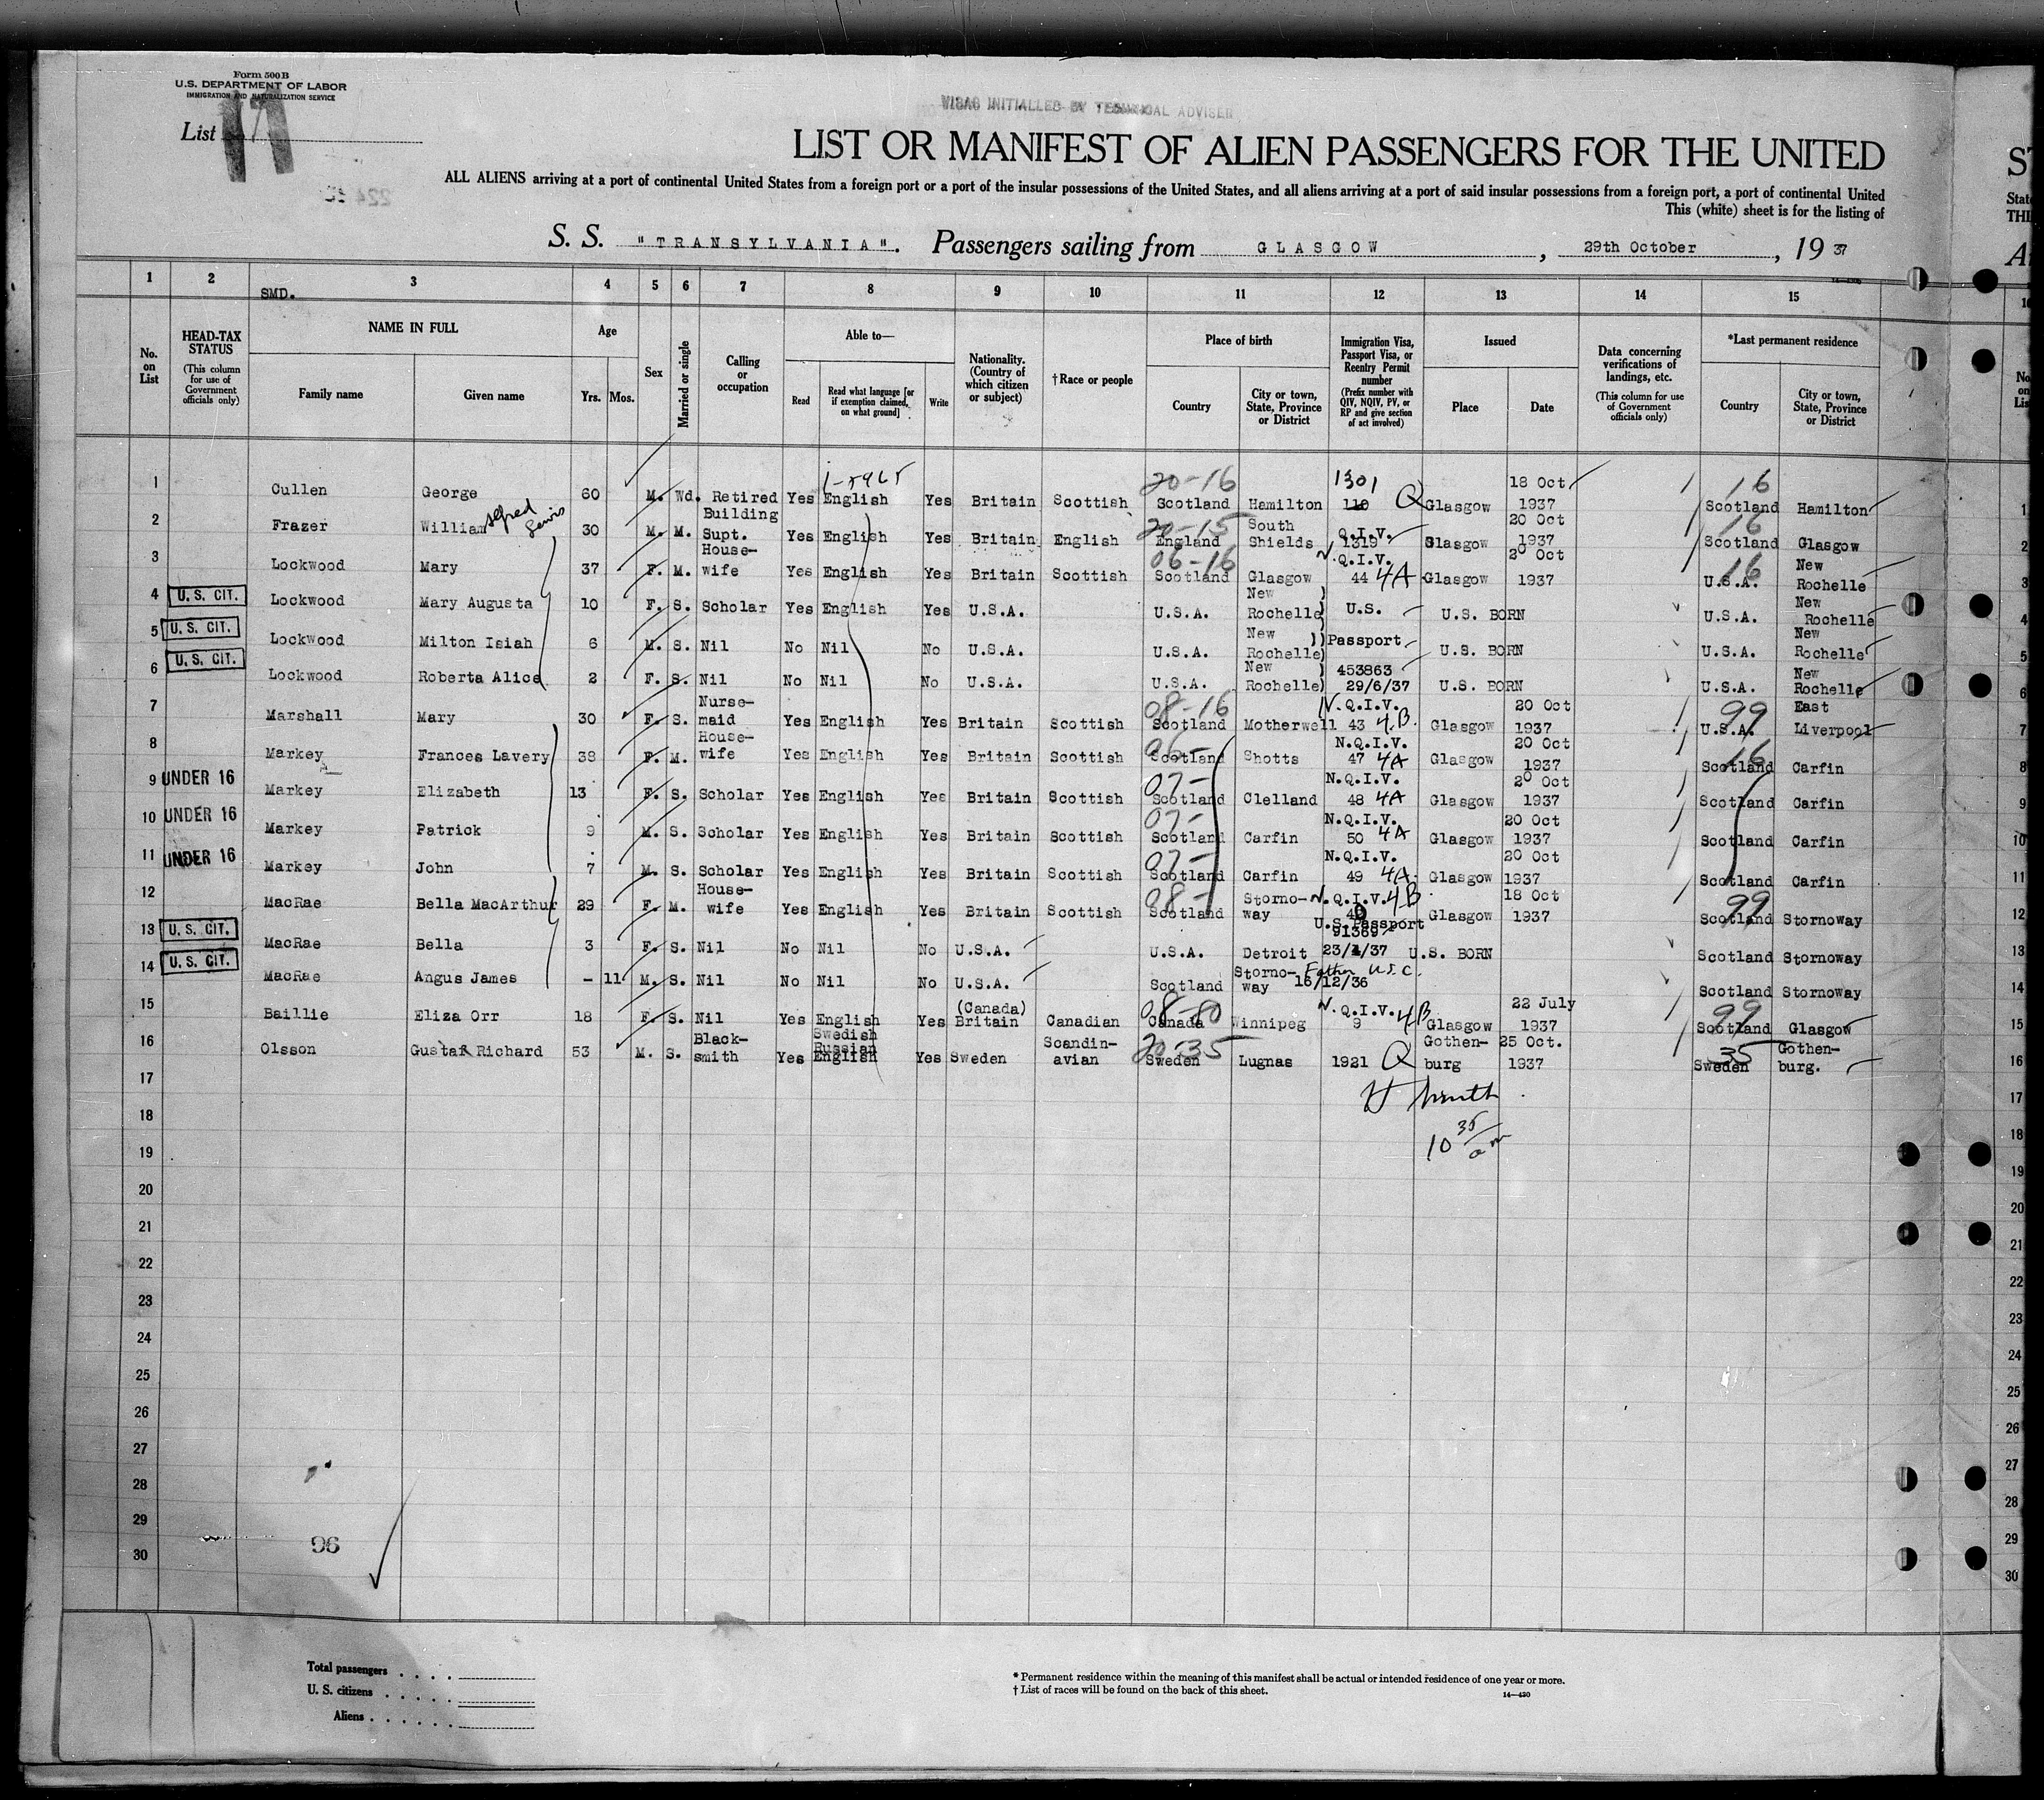 Form 500B
U.S. DEPARTMENT OF LABOR
IMMIGRATION AND NATURALIZATION SERVICE
List 17
VISAS INITIALLED BY TECHNICAL ADVISER
LIST OR MANIFEST OF ALIEN PASSENGERS FOR THE UNITED
ALL ALIENS arriving at a port of continental United States from a foreign port or a port of the insular possessions of the United States, and all aliens arriving at a port of said insular possessions from a foreign port, a port of continental United
This (white) sheet is for the listing of
S. S. "TRANSYLVANIA". Passengers sailing from GLASGOW, 29th October, 19 37
1 2 3 4 5 6 7 8 9 10 11 12 13 14 15
SMD.
No. on List
HEAD-TAX STATUS (This column for use of Government officials only)
NAME IN FULL
Family name Given name
Age
Yrs. Mos.
Sex
Married or single
Calling or occupation
Able to—
Read
Read what language [or if exemption claimed, on what ground]
Write
Nationality. (Country of which citizen or subject)
†Race or people
Place of birth
Country
City or town, State, Province or District
Immigration Visa, Passport Visa, or Reentry Permit number (Prefix number with QIV, NQIV, PV, or RP and give section of act involved)
Issued
Place Date
Data concerning verifications of landings, etc. (This column for use of Government officials only)
*Last permanent residence
Country
City or town, State, Province or District
1 Cullen George 60 M. Wd. Retired Yes English Yes Britain Scottish 20-16 Scotland Hamilton 1301 Q Glasgow 18 Oct 1937 16 Scotland Hamilton
2 Frazer William Alfred Lewis 30 M. M. Building Supt. Yes English Yes Britain English 20-15 England South Shields Q.I.V. 1319 Glasgow 20 Oct 1937 16 Scotland Glasgow
3 Lockwood Mary 37 F. M. House-wife Yes English Yes Britain Scottish 06-16 Scotland Glasgow N.Q.I.V. 44 4A Glasgow 20 Oct 1937 16 U.S.A. New Rochelle
4 U. S. CIT. Lockwood Mary Augusta 10 F. S. Scholar Yes English Yes U.S.A. U.S.A. New Rochelle) U.S. U.S. BORN U.S.A. New Rochelle
5 U. S. CIT. Lockwood Milton Isiah 6 M. S. Nil No Nil No U.S.A. U.S.A. New Rochelle) Passport U.S. BORN U.S.A. New Rochelle
6 U. S. CIT. Lockwood Roberta Alice 2 F. S. Nil No Nil No U.S.A. U.S.A. New Rochelle) 453863 29/6/37 U.S. BORN U.S.A. New Rochelle
7 Marshall Mary 30 F. S. Nurse-maid Yes English Yes Britain Scottish 08-16 Scotland Motherwell N.Q.I.V. 43 4.B. Glasgow 20 Oct 1937 99 U.S.A. East Liverpool
8 Markey Frances Lavery 38 F. M. House-wife Yes English Yes Britain Scottish 06- Scotland Shotts N.Q.I.V. 47 4A Glasgow 20 Oct 1937 16 Scotland Carfin
9 UNDER 16 Markey Elizabeth 13 F. S. Scholar Yes English Yes Britain Scottish 07- Scotland Clelland N.Q.I.V. 48 4A Glasgow 20 Oct 1937 Scotland Carfin
10 UNDER 16 Markey Patrick 9 M. S. Scholar Yes English Yes Britain Scottish 07- Scotland Carfin N.Q.I.V. 50 4A Glasgow 20 Oct 1937 Scotland Carfin
11 UNDER 16 Markey John 7 M. S. Scholar Yes English Yes Britain Scottish 07- Scotland Carfin N.Q.I.V. 49 4A Glasgow 20 Oct 1937 Scotland Carfin
12 MacRae Bella MacArthur 29 F. M. House-wife Yes English Yes Britain Scottish 08- Scotland Storno-way N.Q.I.V. 4B 40 Glasgow 18 Oct 1937 99 Scotland Stornoway
13 U. S. CIT. MacRae Bella 3 F. S. Nil No Nil No U.S.A. U.S.A. Detroit U.S. Passport 23/4/37 U.S. BORN Scotland Stornoway
14 U. S. CIT. MacRae Angus James - 11 M. S. Nil No Nil No U.S.A. Scotland Storno-way Father U.S.C. 16/12/36 Scotland Stornoway
15 Baillie Eliza Orr 18 F. S. Nil Yes English Yes (Canada) Britain Canadian 08-80 Canada Winnipeg N.Q.I.V. 4B 9 Glasgow 22 July 1937 99 Scotland Glasgow
16 Olsson Gustaf Richard 53 M. S. Black-smith Yes Swedish Russian English Yes Sweden Scandin-avian 20-35 Sweden Lugnas 1921 Q Gothen-burg 25 Oct. 1937 35 Sweden Gothen-burg.
17
18
10 35 am
19
20
21
22
23
24
25
26
27
28
29
30
96
Total passengers
U. S. citizens
Aliens
* Permanent residence within the meaning of this manifest shall be actual or intended residence of one year or more.
† List of races will be found on the back of this sheet.
14—420